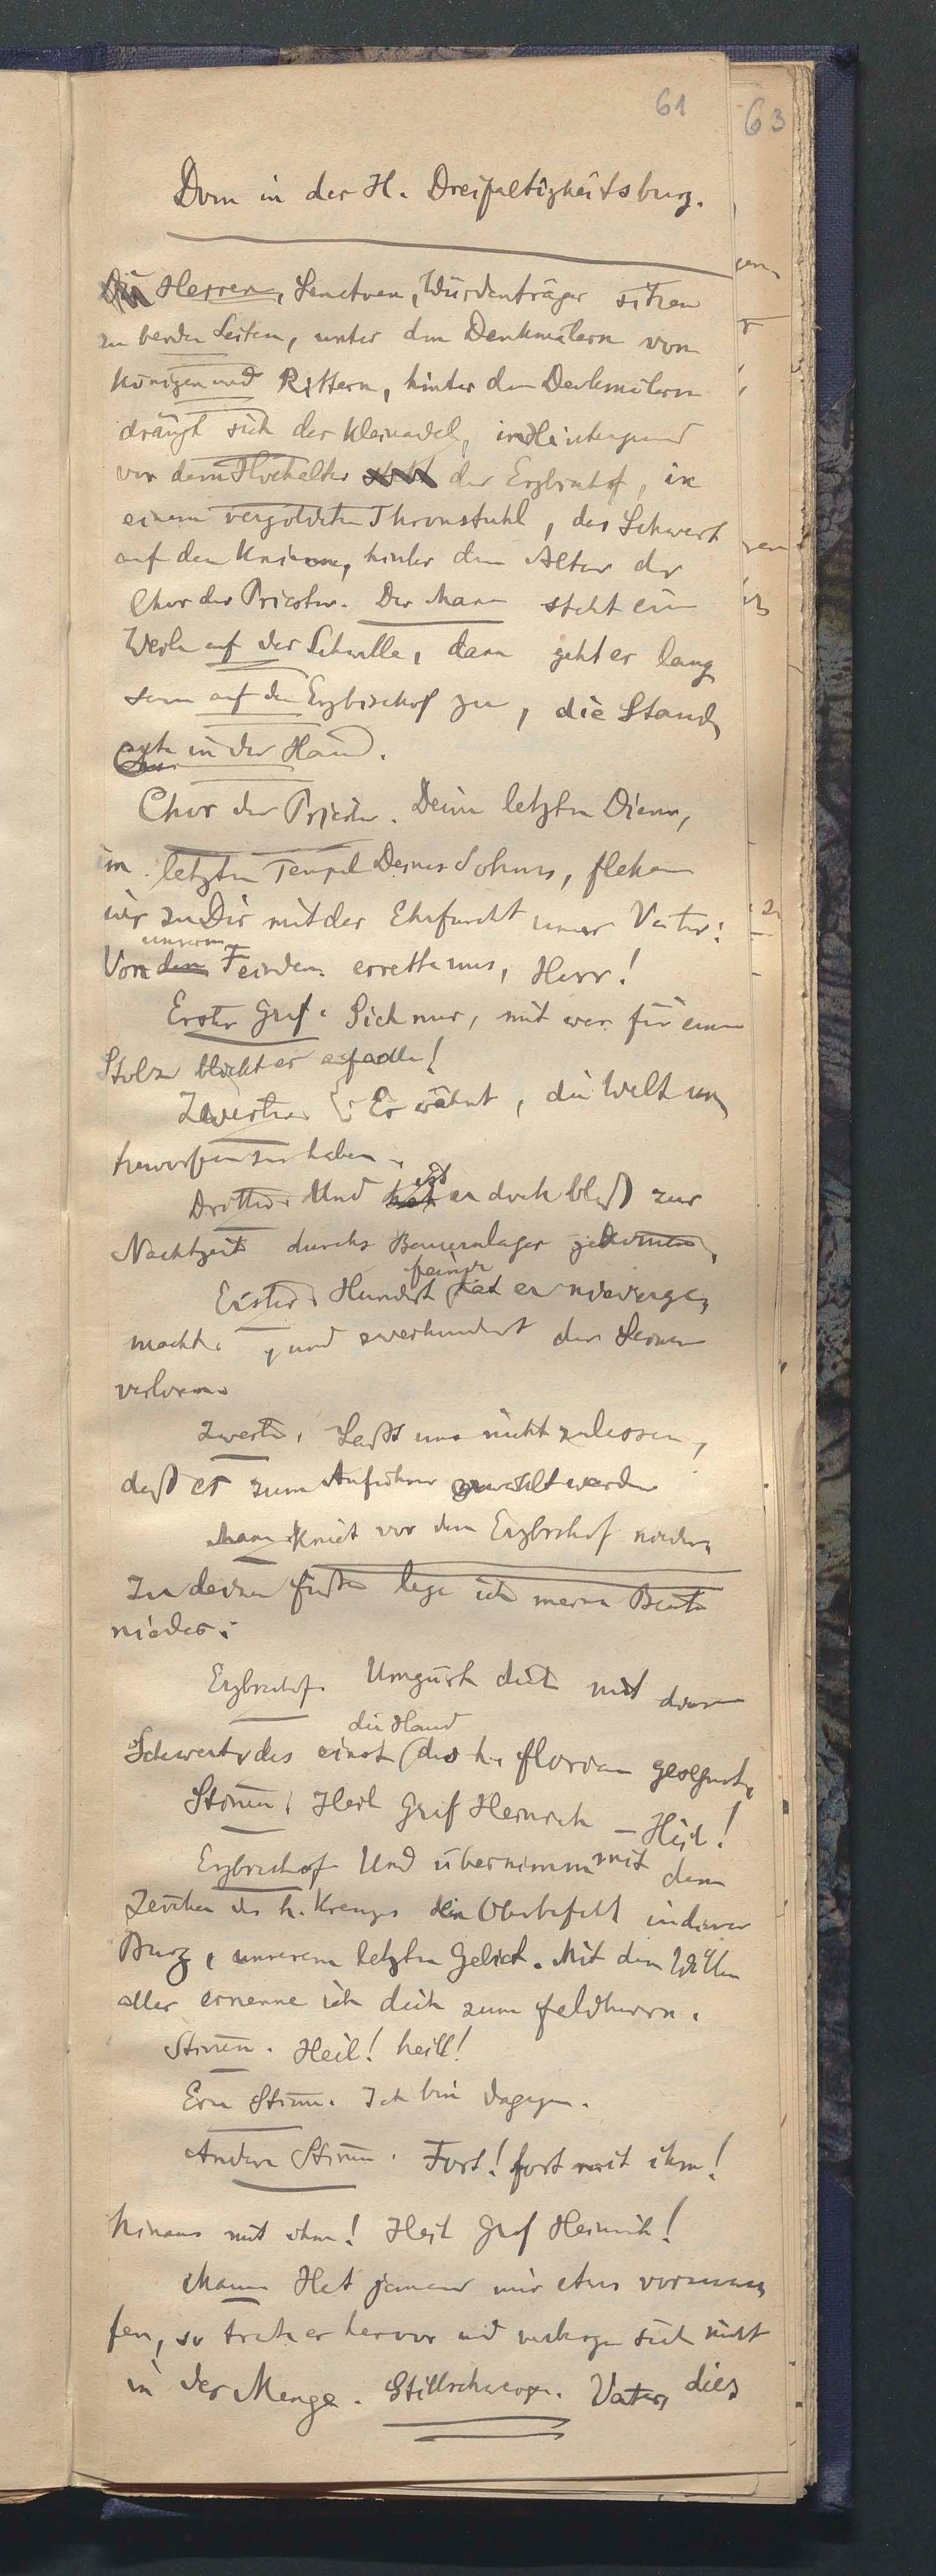 61
63
Dom in der H. Dreifaltigkeitsburg.
Die Herren, Senatoren, Würdenträger sitzen
zu beiden Seiten, unter den Denkmälern von
Königen und Rittern, hinter den Denkmälern
drängt sich der Kleinadel, im Hintergrund
vor dem Hochaltar der Erzbischof, in
einem vergoldeten Thronstuhl, das Schwert
auf den Knieen, hinter dem Altar der
Chor der Priester. Der Mann steht eine
Weile auf der Schwelle, dann geht er lang
sam auf den Erzbischof zu, die Stand
arte in der Hand.
Chor der Priester. Deine letzten Diener,
im letzten Tempel Deines Sohnes, flehen
wir zu Dir mit der Ehrfurcht unsrer Väter:
unseren
Von den Feinden errette uns, Herr!
Erster Graf. Sieh nur, mit was für einem
Stolze blickt er auf alle!
Zweiter. Er wähnt, die Welt un
terworfen zu haben.
ist
Dritter. Und hat er doch bloß zur
Nachtzeit durchs Bauernlager gekommen,
feinde
Erster. Hundert hat er niederge
macht, und zweihundert der Seinen
verloren.
Zweiter. Laßt uns nicht zulassen,
daß er zum Anführer gewählt werde
Mann kniet vor dem Erzbischof nieder,
Zu deinen Füßen lege ich meine Beute
nieder.
Erzbischof. Umgürte dich mit dem
die Hand
Schwert, das einst des h. Florian gesegnet.
Stimmen. Heil Graf Heinrich – Heil!
Erzbischof. Und übernimm mit dem
Zeichen des h. Kreuzes den Oberbefehl in dieser
Burg, unserem letzten Gebiet. Mit dem Willen
aller ernenne ich dich zum Feldherrn.
Stimmen. Heil! heil!
Eine Stimme. Ich bin dagegen.
Andere Stimmen. Fort! fort mit ihm!
hinaus mit ihm! Heil Graf Heinrich!
Mann Hat jemand mir etwas vorzuwer
fen, so trete er hervor und verberge sich nicht
in der Menge. Stillschweigen. Vater, dies